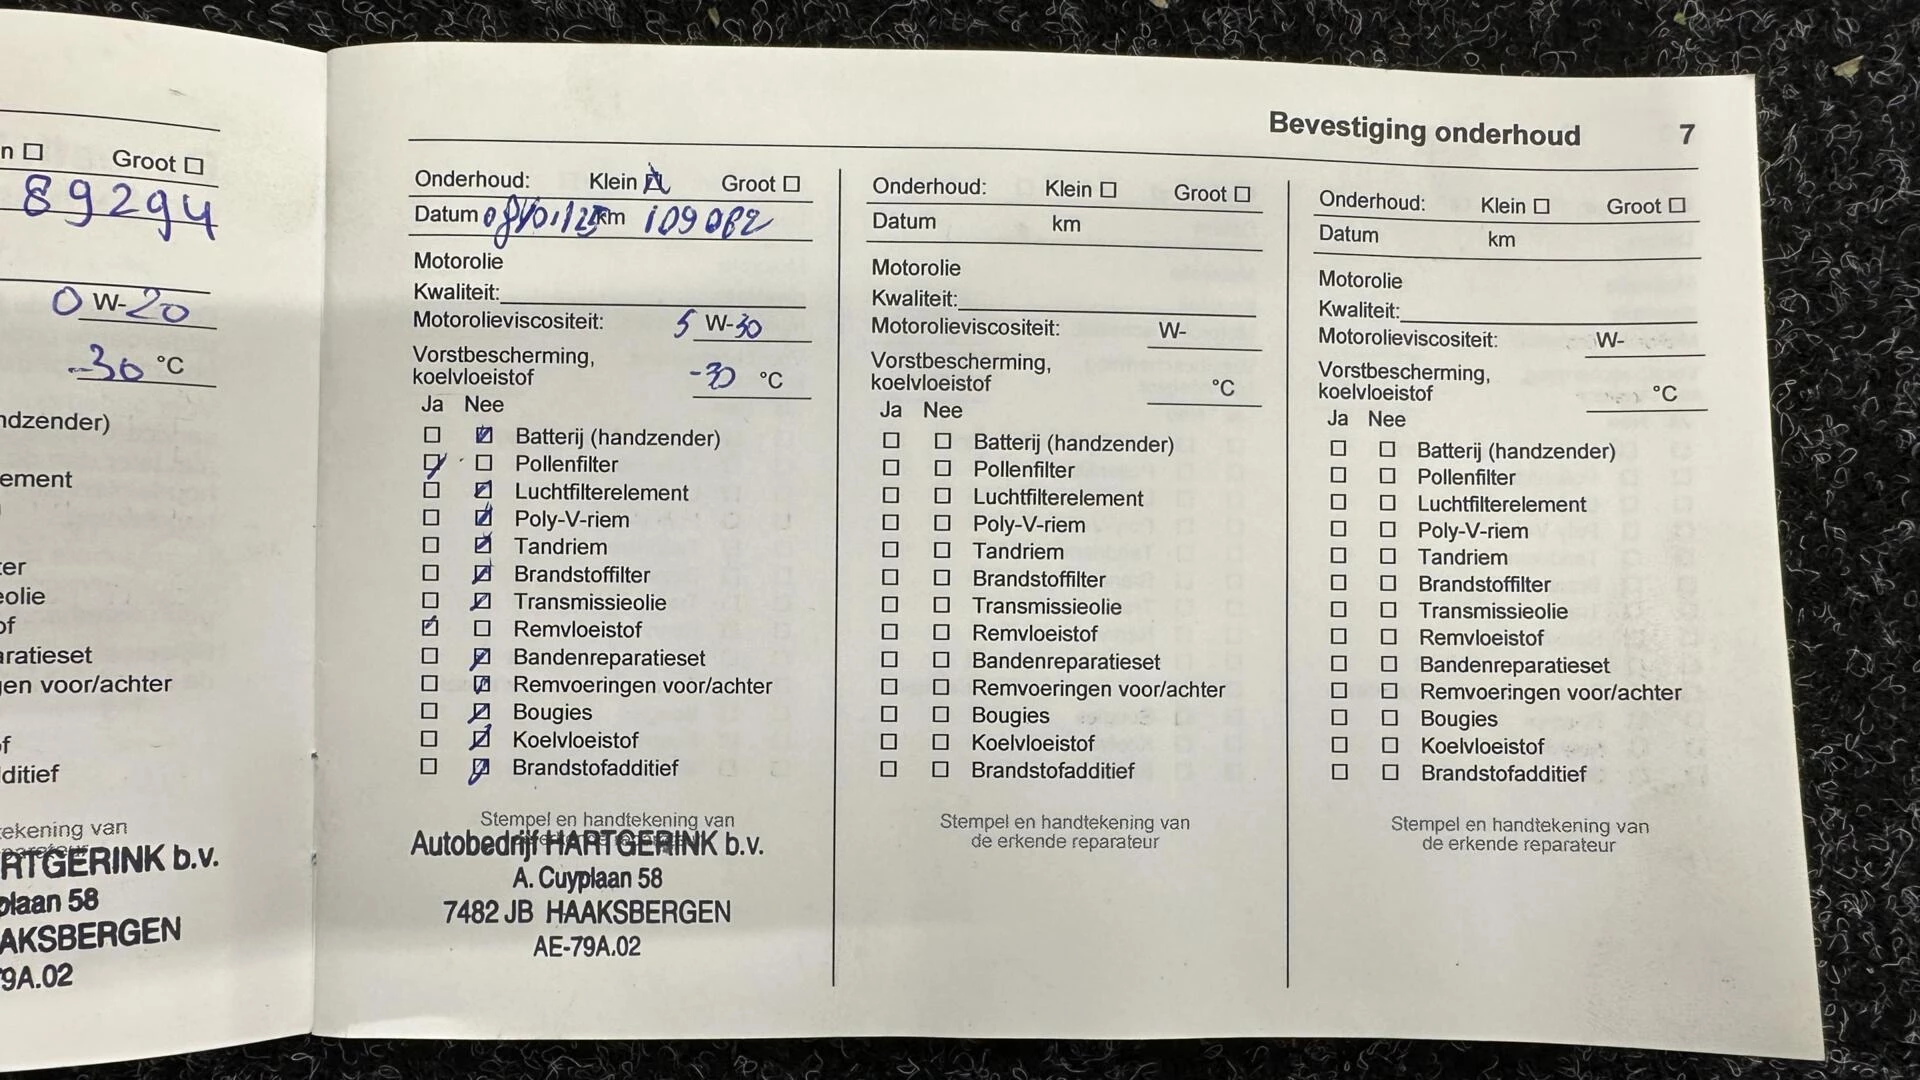 n ☐ Groot ☐
89294
0 W-20
-30 °C
ndzender)
ement
er
eolie
of
aratieset
gen voor/achter
of
dditief
tekening van
RTGERINK b.v.
plaan 58
AKSBERGEN
79A.02
Bevestiging onderhoud 7
Onderhoud: Klein ☑ Groot ☐
Datum 08/01/25 km 109082
Motorolie
Kwaliteit:
Motorolieviscositeit: 5 W-30
Vorstbescherming,
koelvloeistof -30 °C
Ja Nee
☐ ☑ Batterij (handzender)
☑ ☐ Pollenfilter
☐ ☑ Luchtfilterelement
☐ ☑ Poly-V-riem
☐ ☑ Tandriem
☐ ☑ Brandstoffilter
☐ ☑ Transmissieolie
☑ ☐ Remvloeistof
☐ ☑ Bandenreparatieset
☐ ☑ Remvoeringen voor/achter
☐ ☑ Bougies
☐ ☑ Koelvloeistof
☐ ☑ Brandstofadditief
Stempel en handtekening van
Autobedrijf HARTGERINK b.v.
A. Cuyplaan 58
7482 JB HAAKSBERGEN
AE-79A.02
Onderhoud: Klein ☐ Groot ☐
Datum km
Motorolie
Kwaliteit:
Motorolieviscositeit: W-
Vorstbescherming,
koelvloeistof °C
Ja Nee
☐ ☐ Batterij (handzender)
☐ ☐ Pollenfilter
☐ ☐ Luchtfilterelement
☐ ☐ Poly-V-riem
☐ ☐ Tandriem
☐ ☐ Brandstoffilter
☐ ☐ Transmissieolie
☐ ☐ Remvloeistof
☐ ☐ Bandenreparatieset
☐ ☐ Remvoeringen voor/achter
☐ ☐ Bougies
☐ ☐ Koelvloeistof
☐ ☐ Brandstofadditief
Stempel en handtekening van
de erkende reparateur
Onderhoud: Klein ☐ Groot ☐
Datum km
Motorolie
Kwaliteit:
Motorolieviscositeit: W-
Vorstbescherming,
koelvloeistof °C
Ja Nee
☐ ☐ Batterij (handzender)
☐ ☐ Pollenfilter
☐ ☐ Luchtfilterelement
☐ ☐ Poly-V-riem
☐ ☐ Tandriem
☐ ☐ Brandstoffilter
☐ ☐ Transmissieolie
☐ ☐ Remvloeistof
☐ ☐ Bandenreparatieset
☐ ☐ Remvoeringen voor/achter
☐ ☐ Bougies
☐ ☐ Koelvloeistof
☐ ☐ Brandstofadditief
Stempel en handtekening van
de erkende reparateur